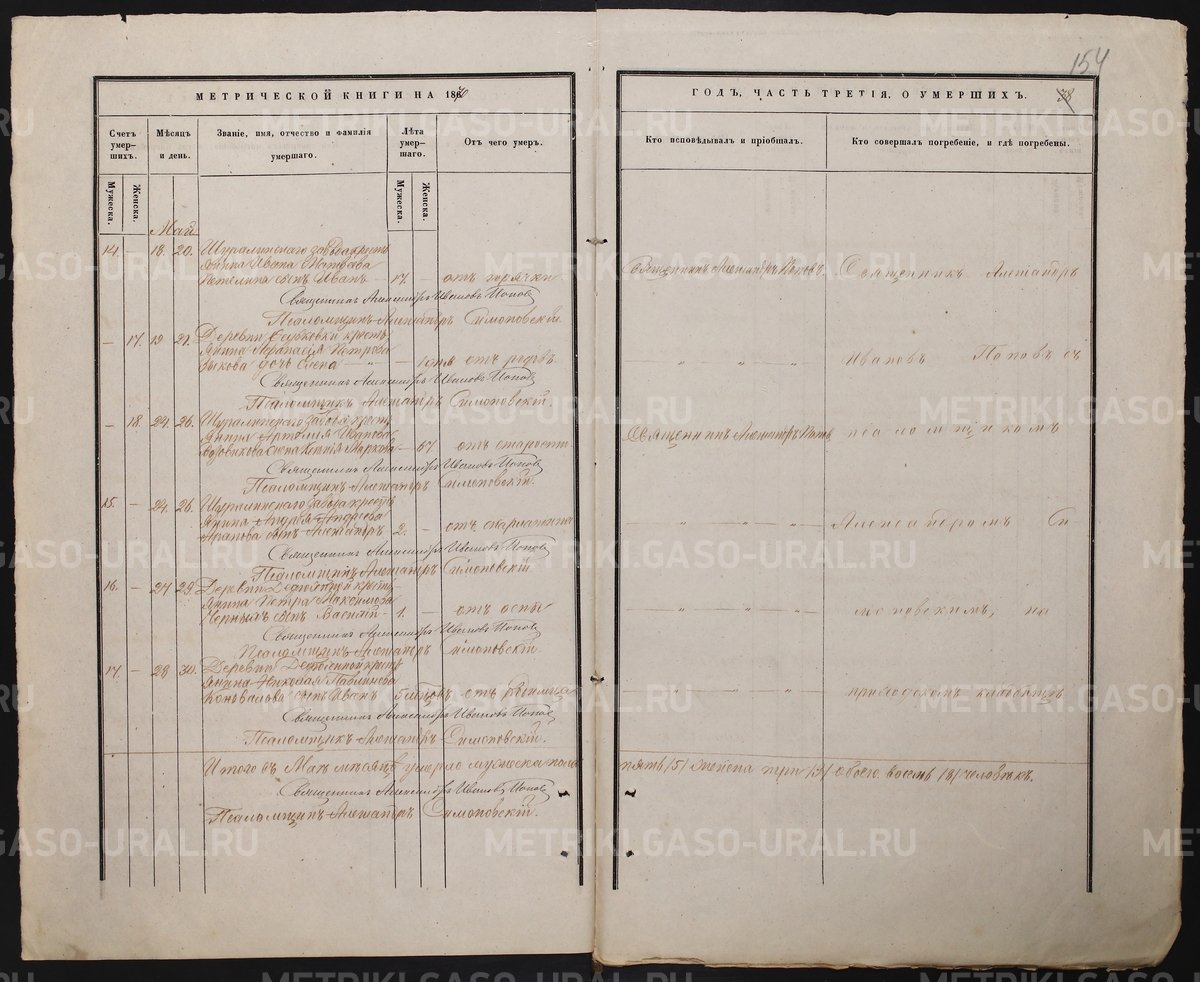 154
МЕТРИЧЕСКОЙ КНИГИ НА 1870
ГОДЪ, ЧАСТЬ ТРЕТІЯ, О УМЕРШИХЪ.
38
Счетъ умер-шихъ.
Мѣсяцъ и день.
Званіе, имя, отчество и фамилія умершаго.
Лѣта умер-шаго.
Отъ чего умеръ.
Кто исповѣдывалъ и пріобщалъ.
Кто совершалъ погребеніе, и гдѣ погребены.
Мужеска.
Женска.
Мужеска.
Женска.
Май
14. — 18. 20. Шуралинскаго завода кресть
янина Ивана Матвѣева
сынъ Иванъ 17. — отъ горячки
Священникъ Александръ Поповъ
Священникъ Александръ
Священникъ Александръ Ивановъ Поповъ
Псаломщикъ Александръ Симоновскій.
— 17. 19 21. Деревни кресть
янина Аѳанасія Петрова
Зыкова дочь Елена — 1 дня отъ родовъ
" " "
Ивановъ Поповъ съ
Священникъ Александръ Ивановъ Поповъ
Псаломщикъ Александръ Симоновскій.
— 18. 24. 26. Шуралинскаго завода кресть
янина Артемія Иванова
жена Ксенія Маркова — 67 отъ старости
Священникъ Александръ Поповъ
псаломщикомъ
Священникъ Александръ Ивановъ Поповъ
Псаломщикъ Александръ Симоновскій.
15. — 24. 26. Шуралинскаго завода кресть
янина Андрея Андреева
Арапова сынъ Александръ 2. — отъ скарлатина
" " "
Александромъ Си
Священникъ Александръ Ивановъ Поповъ
Псаломщикъ Александръ Симоновскій
16. — 27 29. Деревни кресть
янина Петра Максимова
Черныхъ сынъ Василій 1. — отъ оспы
" " "
моновскимъ, на
Священникъ Александръ Ивановъ Поповъ
Псаломщикъ Александръ Симоновскій.
17. — 28 30. Деревни кресть
янина Николая Павлинова
Коновалова сынъ Иванъ 5 мѣсяцовъ отъ
" " "
приходскомъ кладбищѣ
Священникъ Александръ Ивановъ Поповъ
Псаломщикъ Александръ Симоновскій.
Итого въ Маѣ мѣсяцѣ умерло мужеска пола пять /5/ женска три /3/ обоего восемь /8/ человѣкъ.
Священникъ Александръ Ивановъ Поповъ
Псаломщикъ Александръ Симоновскій.
METRIKI.GASO-URAL.RU